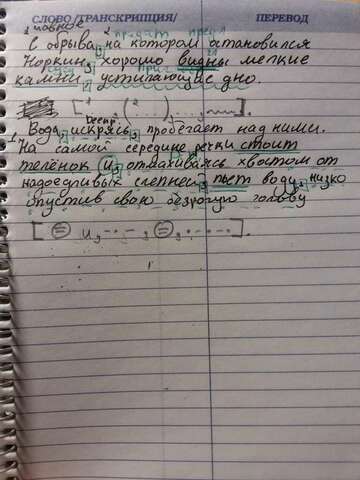 СЛОВО /ТРАНСКРИПЦИЯ/ ПЕРЕВОД
главное придат предл
С обрыва, на котором остановился
Норкин, хорошо видны мелкие
камни, устилающие дно.
Вода, искрясь, пробегает над ними.
На самой середине речки стоит
телёнок и, отмахиваясь хвостом от
надоедливых слепней, пьёт воду, низко
опустив свою безрогую голову